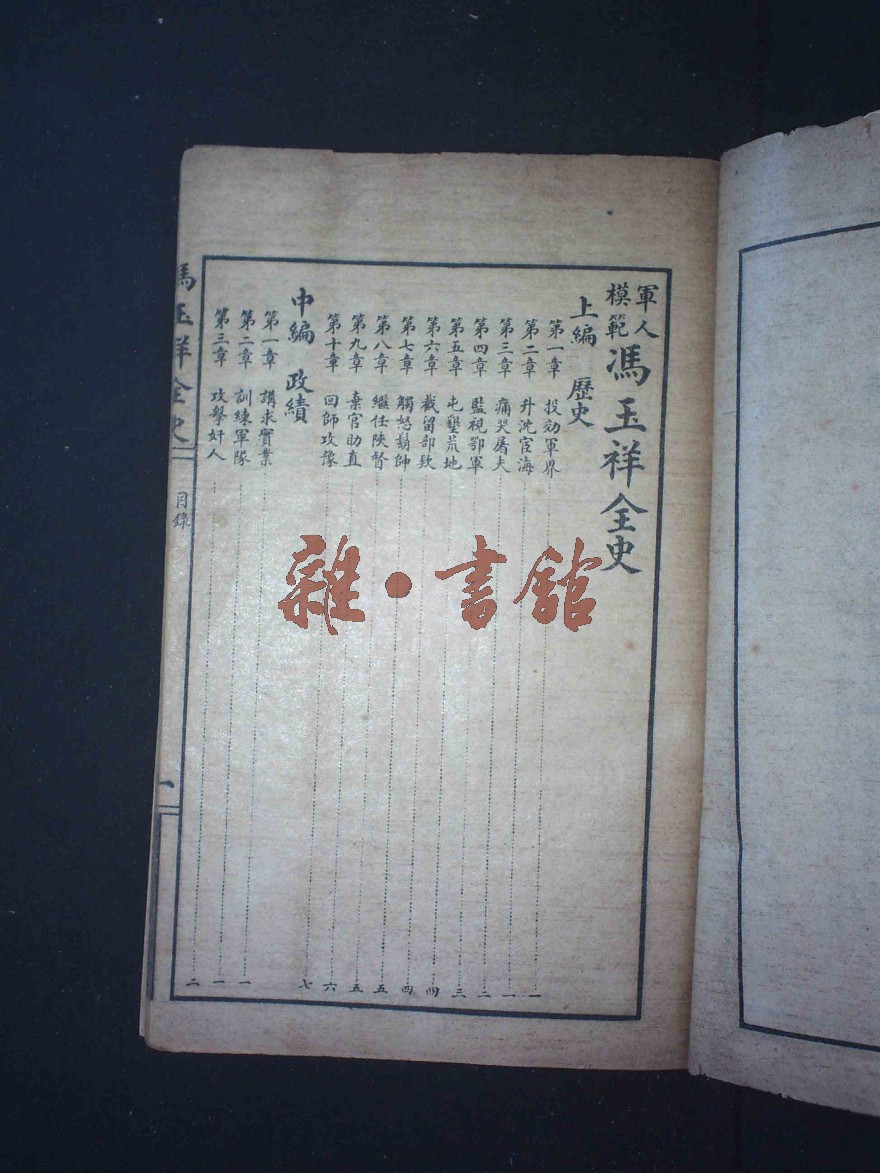 軍人模範 馮玉祥全史
上編 歷史
第一章 投効軍界 一
第二章 升沈宦海 一
第三章 痛哭屠夫 二
第四章 監視鄂軍 二
第五章 屯墾荒地 三
第六章 截留部欵 四
第七章 觸怒鬍帥 四
第八章 繼任陝督 五
第九章 棄官助直 五
第十章 回師攻豫 六
中編 政績
第一章 講求實業 一
第二章 訓練軍隊 一
第三章 攻擊奸人 二
馮玉祥全史
目錄
一
雜·書館